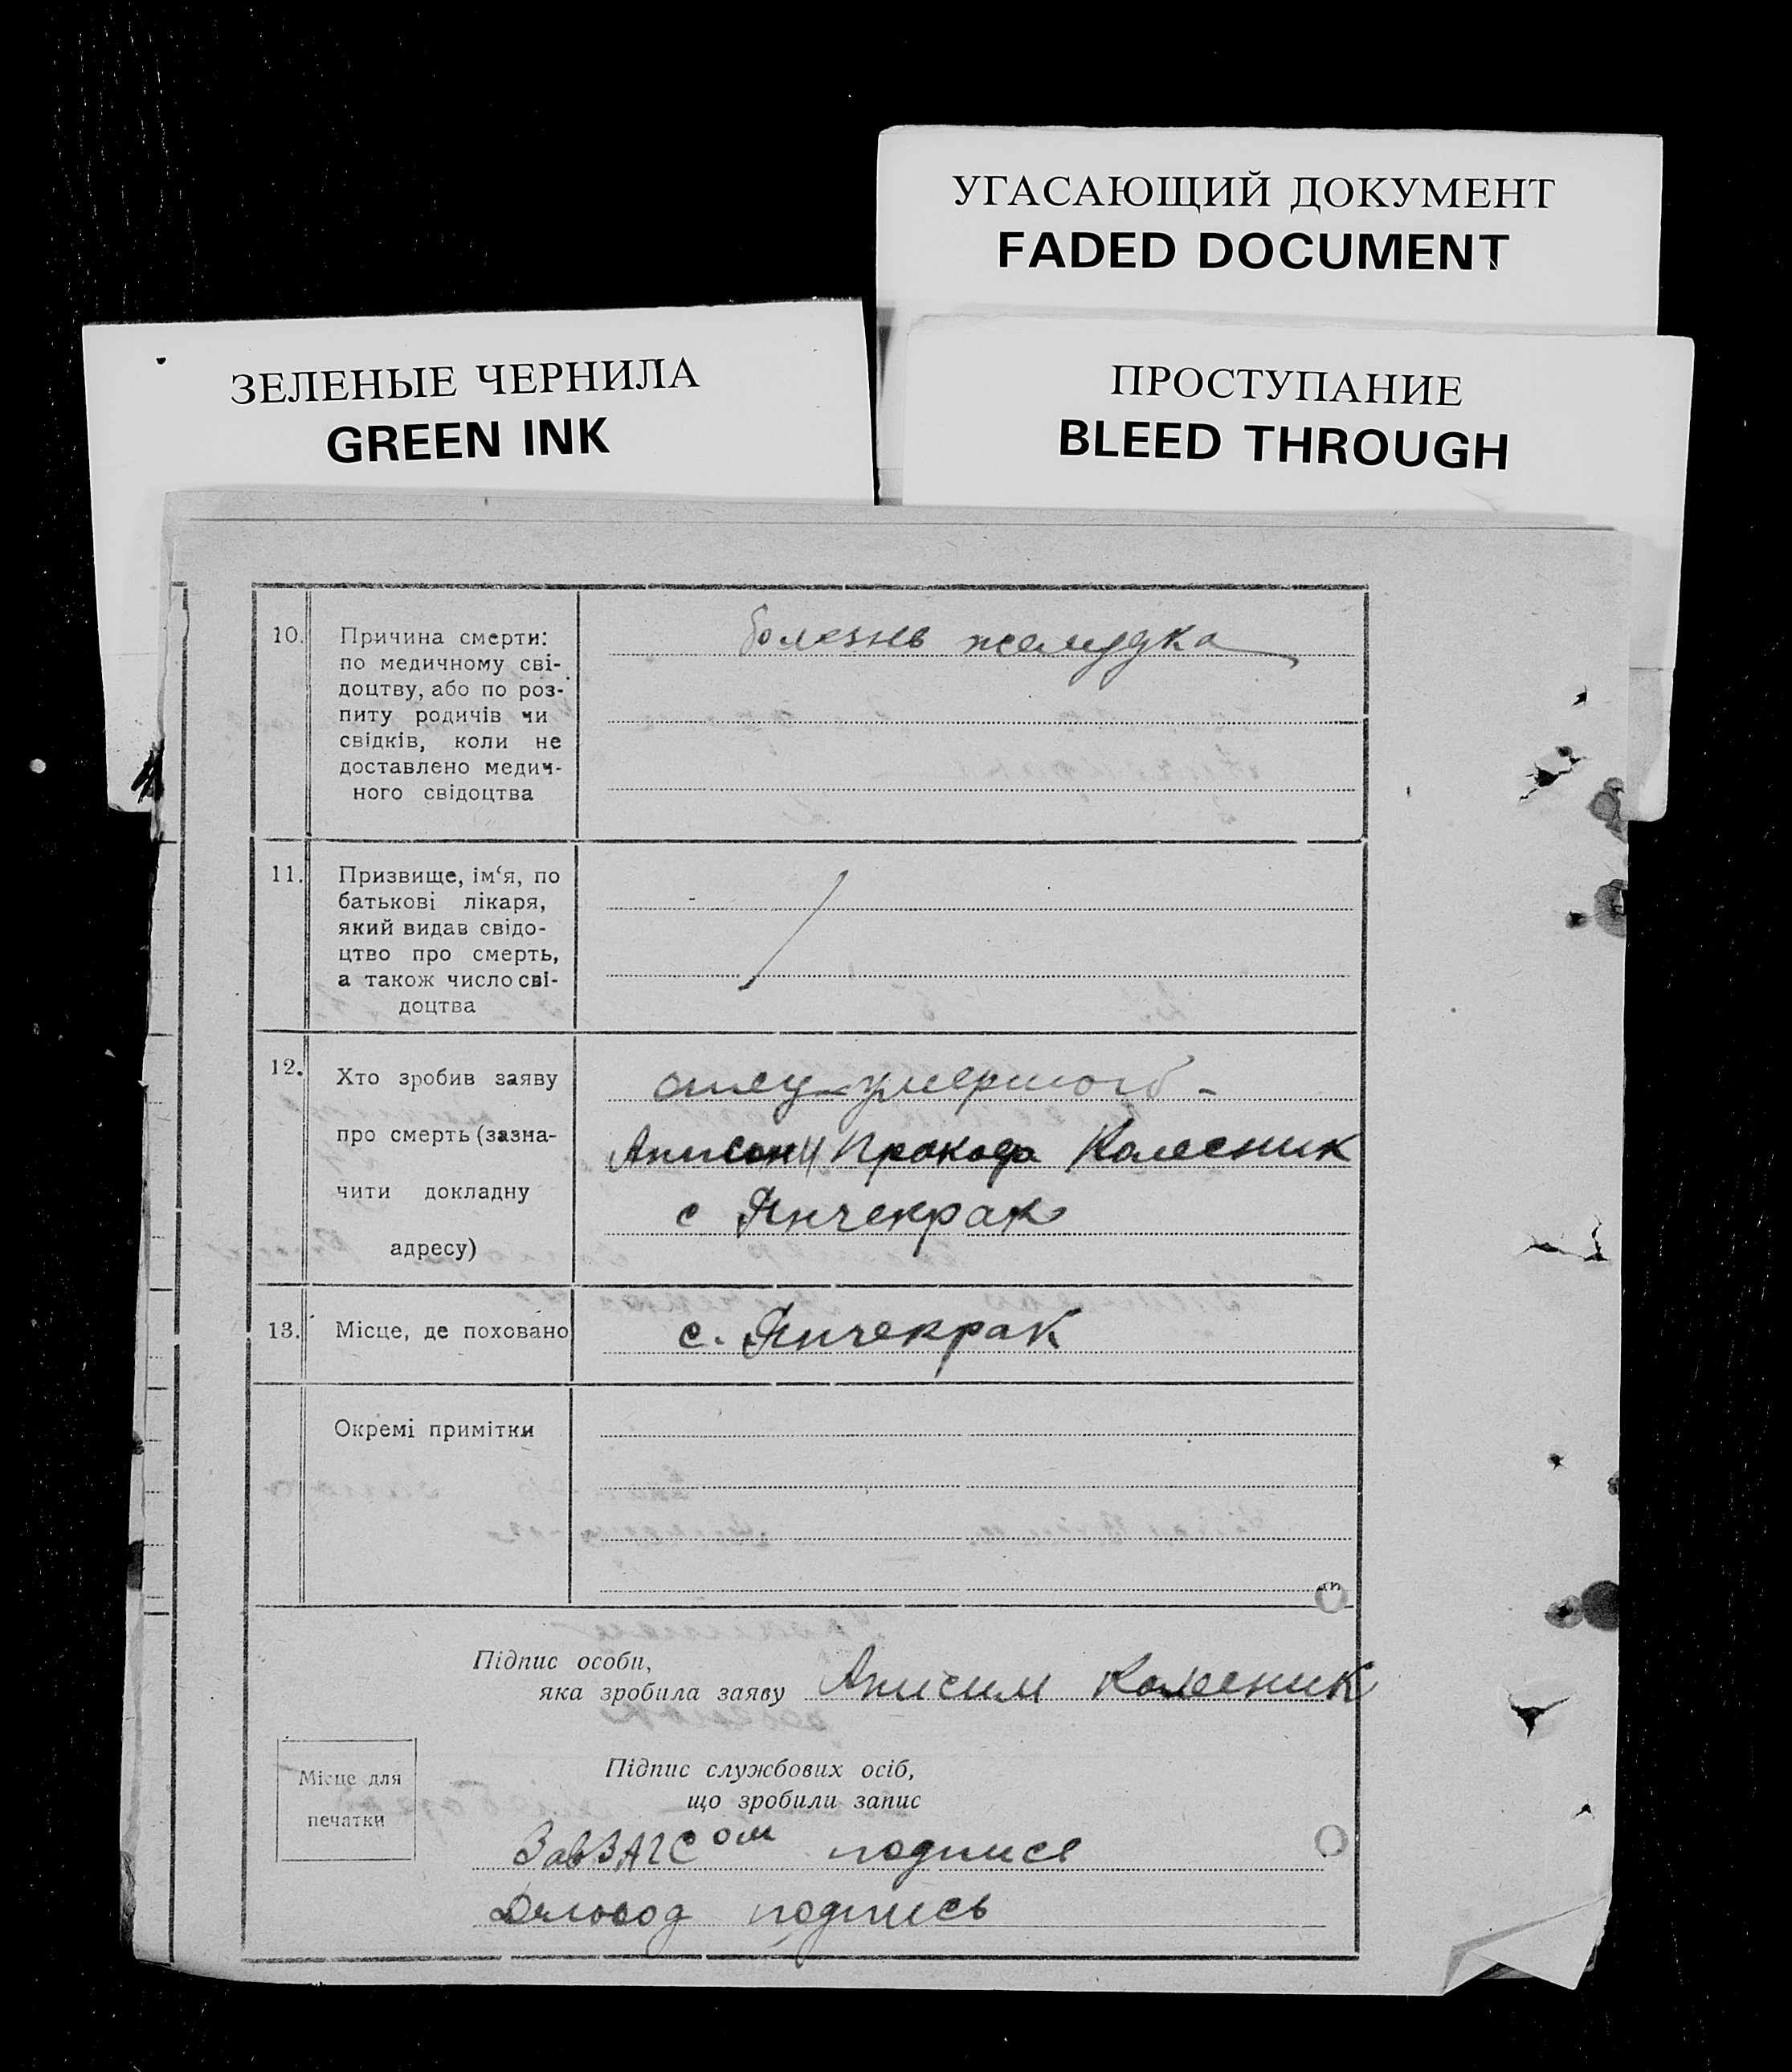 УГАСАЮЩИЙ ДОКУМЕНТ
FADED DOCUMENT
ЗЕЛЕНЫЕ ЧЕРНИЛА
GREEN INK
ПРОСТУПАНИЕ
BLEED THROUGH
10. Причина смерти:
по медичному сві-
доцтву, або по роз-
питу родичів чи
свідків, коли не
доставлено медич-
ного свідоцтва
болезнь желудка
11. Призвище, ім‘я, по
батькові лікаря,
який видав свідо-
цтво про смерть,
а також число сві-
доцтва
12. Хто зробив заяву
про смерть (зазна-
чити докладну
адресу)
умершого -
Колесник
с Янчекрак
13. Місце, де поховано
с. Янчекрак
Окремі примітки
Підпис особи,
яка зробила заяву Анисим Колесник
Місце для
печатки
Підпис службових осіб,
що зробили запис
ЗавЗАГСом подпись
Деловод подпись